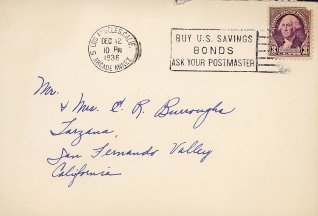 LOS ANGELES, CALIF.
DEC 12
10 PM
1936
ARCADE ANNEX
BUY U.S. SAVINGS
BONDS
ASK YOUR POSTMASTER
3
Mr.
& Mrs. E. R. Burroughs
Tarzana,
San Fernando Valley
California